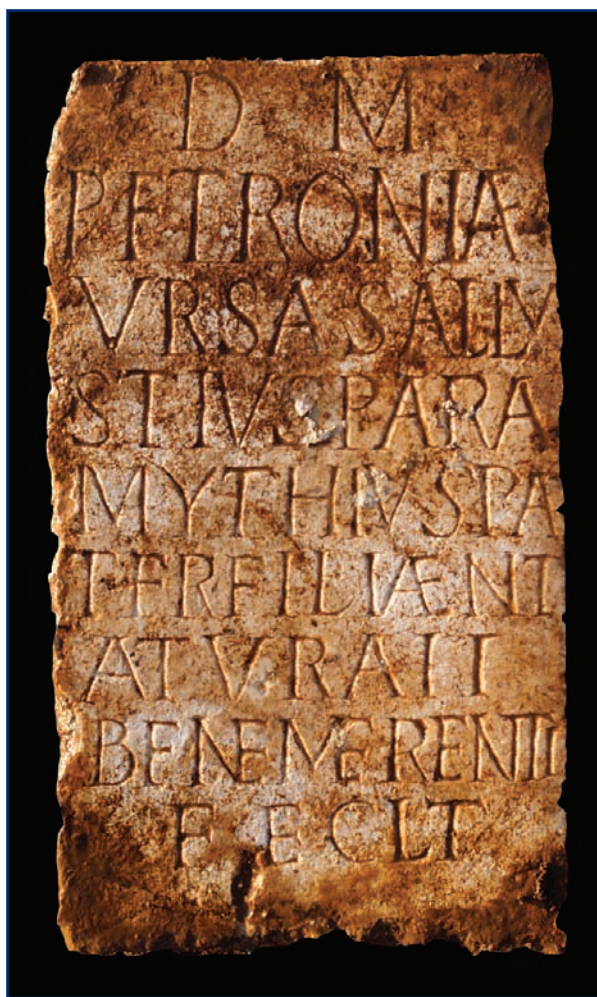 D M
PETRONIÆ
VRSA SALLV
STIVS PARA
MYTHIVS PA
TER FILIÆ NT
ATVRALI
BENEMERENTI
FECIT